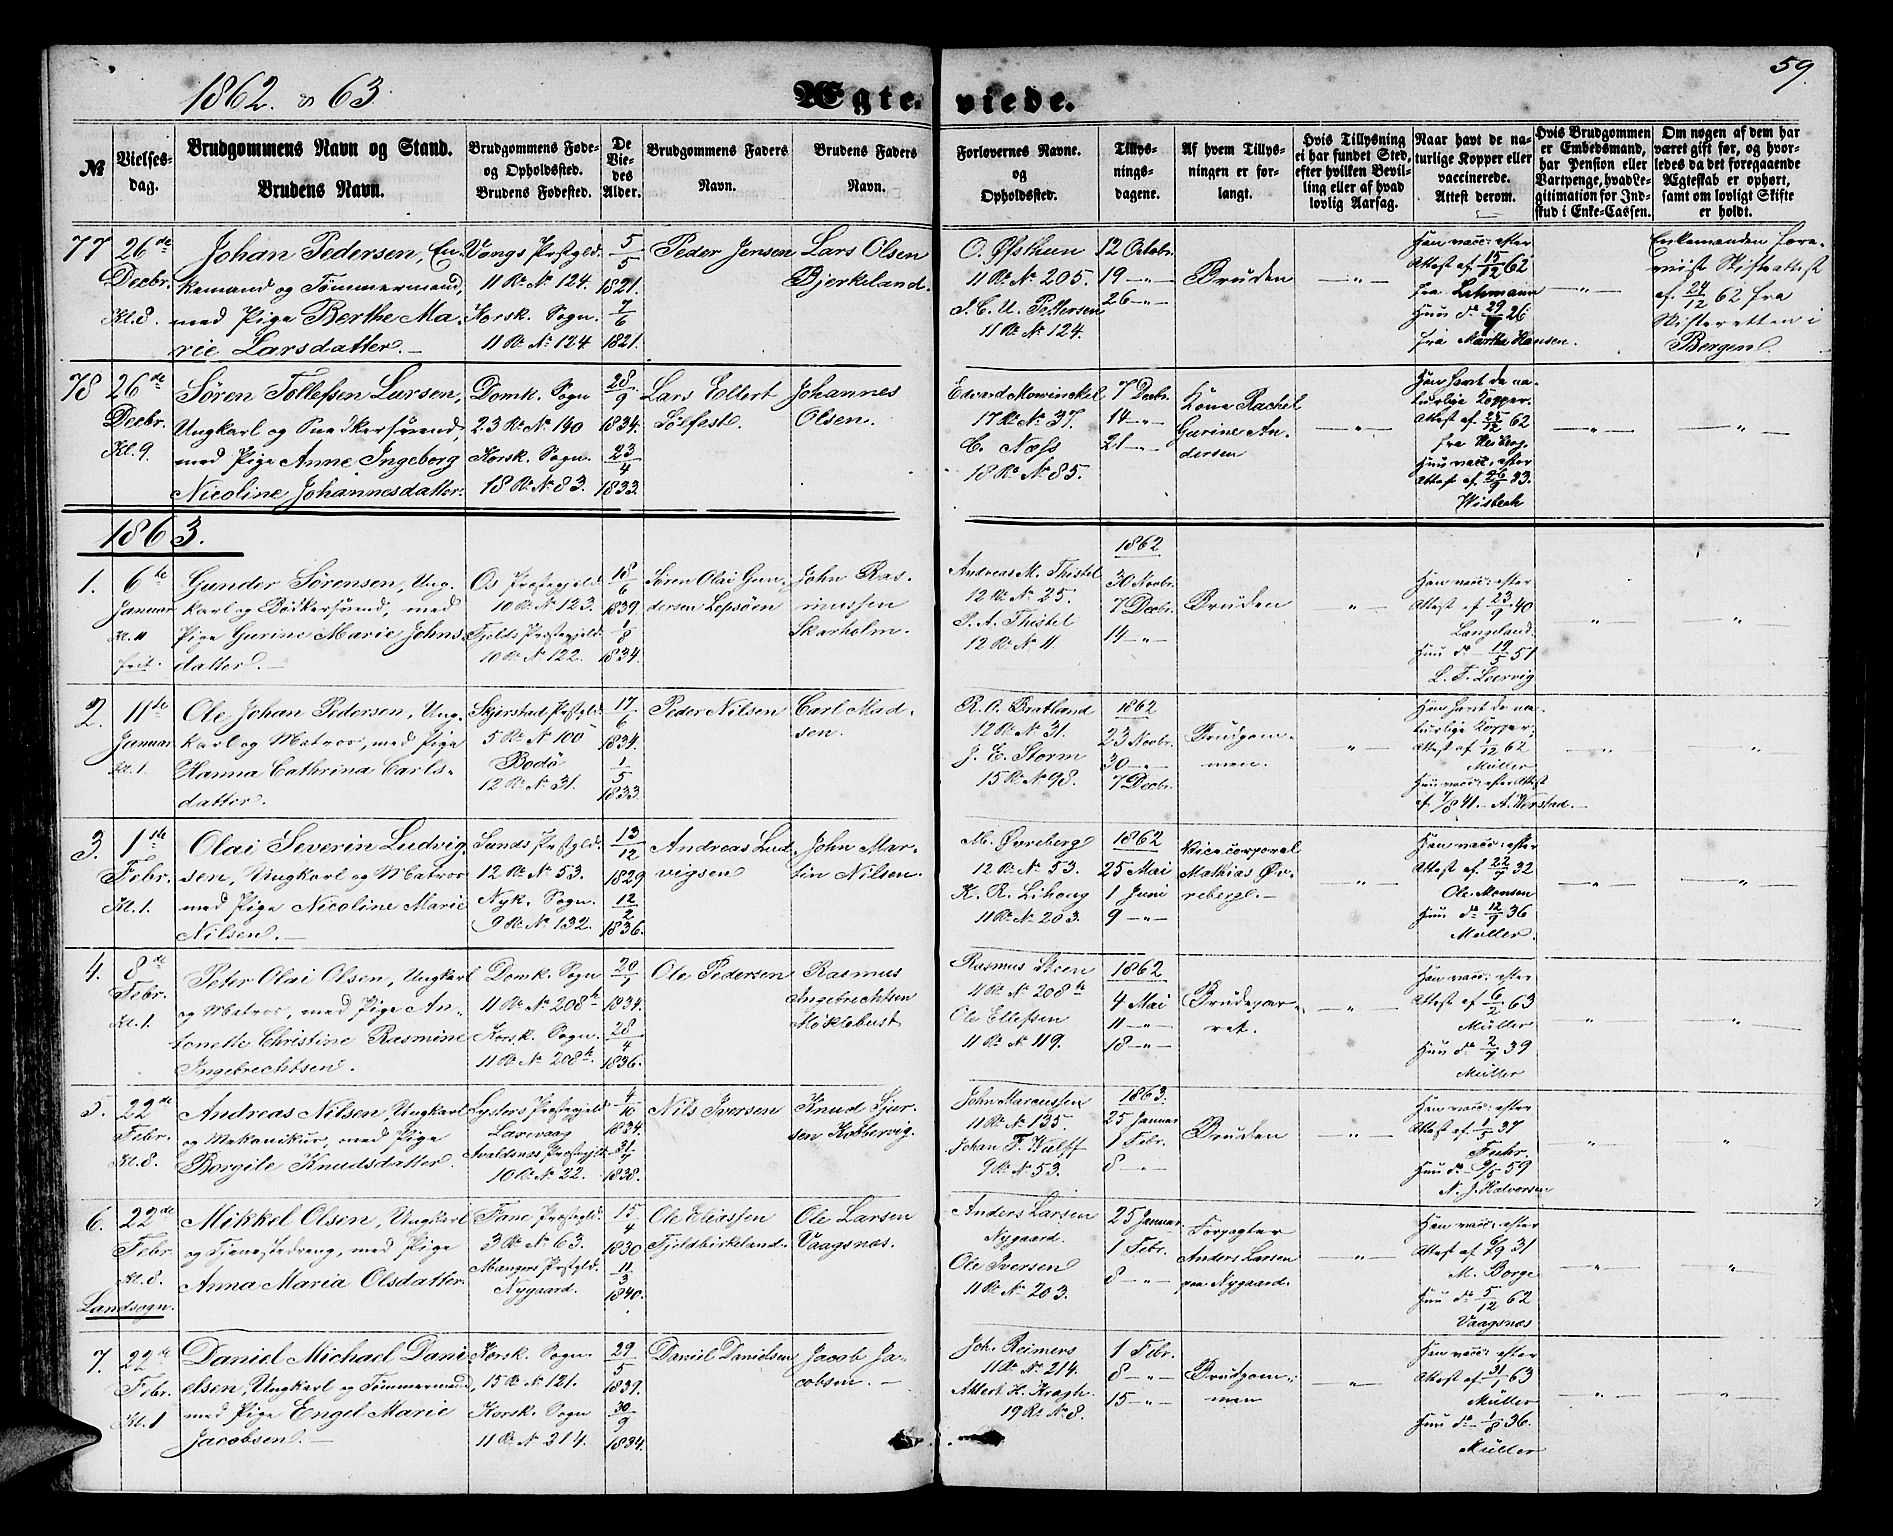 1862. & 63.
Ægte-viede.
59.
№
Vielses-
dag.
Brudgommens Navn og Stand.
Brudens Navn.
Brudgommens Føde-
og Opholdssted.
Brudens Fødested.
De
Vie-
des
Alder.
Brudgommens Faders
Navn.
Brudens Faders
Navn.
Forlovernes Navne.
og
Opholdssted.
Tillys-
nings-
dagene.
Af hvem Tillys-
ningen er for-
langt.
Hvis Tillysning
ei har fundet Sted,
efter hvilken Bevil-
ling eller af hvad
lovlig Aarsag.
Naar havt de na-
turlige Kopper eller
vaccinerede.
Attest derom.
Hvis Brudgommen
er Embedsmand,
har Pension eller
Vartpenge, hvad Le-
gitimation for Ind-
skud i Enke-Cassen.
Om nogen af dem har
været gift før, og hvor-
ledes da det foregaaende
Ægteskab er ophørt,
samt om lovligt Skifte
er holdt.
77
26de
Decbr.
Kl. 8.
Johan Pedersen, En-
kemand og Tømmermand,
med Pige Berthe Ma-
rie Larsdatter.
Vangs Præstgld.
11 R. N. 124.
Korsk. Sogn.
11 R. N. 124
5/5
1821.
7/6
1821.
Peder Jensen
Lars Olsen
Bjerkeland.
O. Øfsthun
11 R. N. 205.
J. C. U. Pettersen
11 R. N. 124.
12 Octobr.
19 — „ —
26 — „ —
Bruden
— „ —
Han vacc: efter
Attest af 15/12 62
fra Lehmann
Hun do 29/7 26
fra Martha Hansen.
— „ —
Enkemanden fore-
viist Skifteattest
af 24/12 62 fra
Skifteretten i
Bergen.
78
26de
Decbr.
Kl. 9.
Søren Tollefsen Larsen,
Ungkarl og Snedkersvend,
med Pige Anne Ingeborg
Nicoline Johannesdatter.
Domk. Sogn
23 R. N. 140
Korsk. Sogn.
18 R. N. 83.
28/9
1834.
23/4
1833.
Lars Ellert
Sølfest.
Johannes
Olsen.
Edvard Mowinckel
17 R. N. 37.
C. Næss
18 R. N. 85.
7 Decbr.
14 — „ —
21 — „ —
Kone Rachel
Gurine An-
dersen
— „ —
Han havt de na-
turlige Kopper.
Attest af 25/12 62
fra Heiberg.
Hun vacc: efter
Attest af 26/9 33.
Wisbech
— „ —
— „ —
1863.
1.
6te
Januar
Kl. 11
frit.
Gunder Sørensen, Ung-
karl og Bødkersvend, med
Pige Gurine Marie Johns-
datter.
Os Præstegjeld
10 R. N. 123.
Fjelds Præstegjeld.
10 R. N. 122.
18/6
1839.
1/8
1834.
Søren Olai Gun-
dersen Lepsøen
John Ras-
mussen
Skarholm.
Andreas M. Thistel
12 R. N. 25.
P. A. Thistel
12 R. N. 11.
1862
30 Novbr.
7 Decbr.
14 — „ —
Bruden
„ —
Han vacc: efter
Attest af 23/9 40
Langeland.
Hun do 19/5 51
L. T. Leervig
— „ —
— „ —
2.
11te
Januar
Kl. 1.
Ole Johan Pedersen, Ung-
karl og Matros, med Pige
Hanna Cathrina Carls-
datter.
Skjerstad Præstgld
5 R. N. 100
Bodø
12 R. N. 31.
17/6
1834.
1/5
1833.
Peder Nilsen
Carl Mad-
sen.
R. O. Bratland
12 R. N. 31.
J. E. Storm
15 R. N. 98.
1862
23 Novbr.
30 — „ —
7 Decbr.
Brudgom-
men.
„ —
Han havt de na-
turlige Kopper,
Attest af 1/12 62
Müller
Hun vacc: efter Attest
af 7/8 41. A. Verstad.
— „ —
„
3.
1ste
Febr.
Kl. 1.
Olai Severin Ludvig-
sen, Ungkarl og Matros
med Pige Nicoline Marie
Nilsen.
Sunds Præstgld.
12 R. N. 53.
Nyk. Sogn.
9 R. N. 132.
13/12
1829
12/2
1836.
Andreas Lud-
vigsen
John Mar-
tin Nilsen.
M. Øvreberg
12 R. N. 53.
K. R. Lihoug
11 R. N. 203.
1862
25 Mai
1 Juni
9 — „ —
Vicecorporal
Mathias Øv-
reberg.
— „ —
Han vacc: efter
Attest af 22/7 32
Ole Monsen
Hun do 12/9 36
Müller.
— „ —
— „ —
4.
8de
Febr.
Kl. 1.
Peter Olai Olsen, Ungkarl
og Matros, med Pige An-
tonette Christine Rasmine
Ingebrechtsen.
Domk. Sogn
11 R. N. 208 b
Korsk. Sogn.
11 R. N. 208 b.
20/1
1834.
28/4
1836.
Ole Pedersen
Rasmus
Ingebrechtsen
Møklebust
Rasmus Steen
11 R. N. 208 b
Ole Ellefsen
11 R. N. 119.
1862
4 Mai
11 — „ —
18 — „ —
Brudepar-
ret.
— „ —
Han vacc: efter
Attest af 6/2 63
Müller
Hun do 2/7 39
Müller
„
„
5.
22de
Febr.
Kl. 8.
Andreas Nilsen, Ungkarl
og Mekanikus, med Pige
Borgile Knudsdatter.
Lysters Præstegjeld
Larevaag
Avaldsnes Præstegjeld
10 R. N. 22.
4/10
1834.
31/7
1838.
Nils Iversen
Knud Sjur-
sen Kobbervig.
John Marcussen
11 R. N. 135.
Johan F. Wulff
9 R. N. 53.
1863.
25 Januar
1 Febr.
8 — „ —
Bruden
— „ —
Han vacc: efter
Attest af 1/5 37
Hun do 9/5 59
N. J. Halvorsen
„
„
6.
22de
Febr.
Kl. 8.
Landsogn.
Mikkel Olsen, Ungkarl
og Tjenestedreng, med Pige
Anna Maria Olsdatter.
Fane Præstegld.
3 R. N. 63.
Mangers Præstgld.
Nygaard.
15/4
1830
11/3
1840.
Ole Eliassen
Fjeldbirkeland.
Ole Larsen
Vaagsnes.
Anders Larsen
Nygaard.
Ole Iversen
11 R. N. 203.
25 Januar.
1 Febr.
8 — „ —
Forpagter
Anders Larsen
paa Nygaard.
— „ —
Han vacc: efter
Attest af 6/9 31
M. Borge
Hun do 5/12 62
Vaagsnes
— „ —
„
7.
22de
Febr.
Kl. 1
Daniel Michael Dani-
elsen, Ungkarl og Tømmermand,
med Pige Engel Marie
Jacobsen.
Korsk. Sogn.
15 R. N. 121.
Korsk. Sogn
11 R. N. 214.
29/5
1839.
30/9
1834.
Daniel Danielsen
Jacob Ja-
cobsen.
Joh. Reimers
11 R. N. 214.
Albert H. Kragh.
19 R. N. 8.
1 Febr.
8 — „ —
15 — „ —
Brudgom-
men
„ —
Han vacc: efter
Attest af 31/1 63
Müller
Hun do 1/8 36.
Müller
— „ —
„